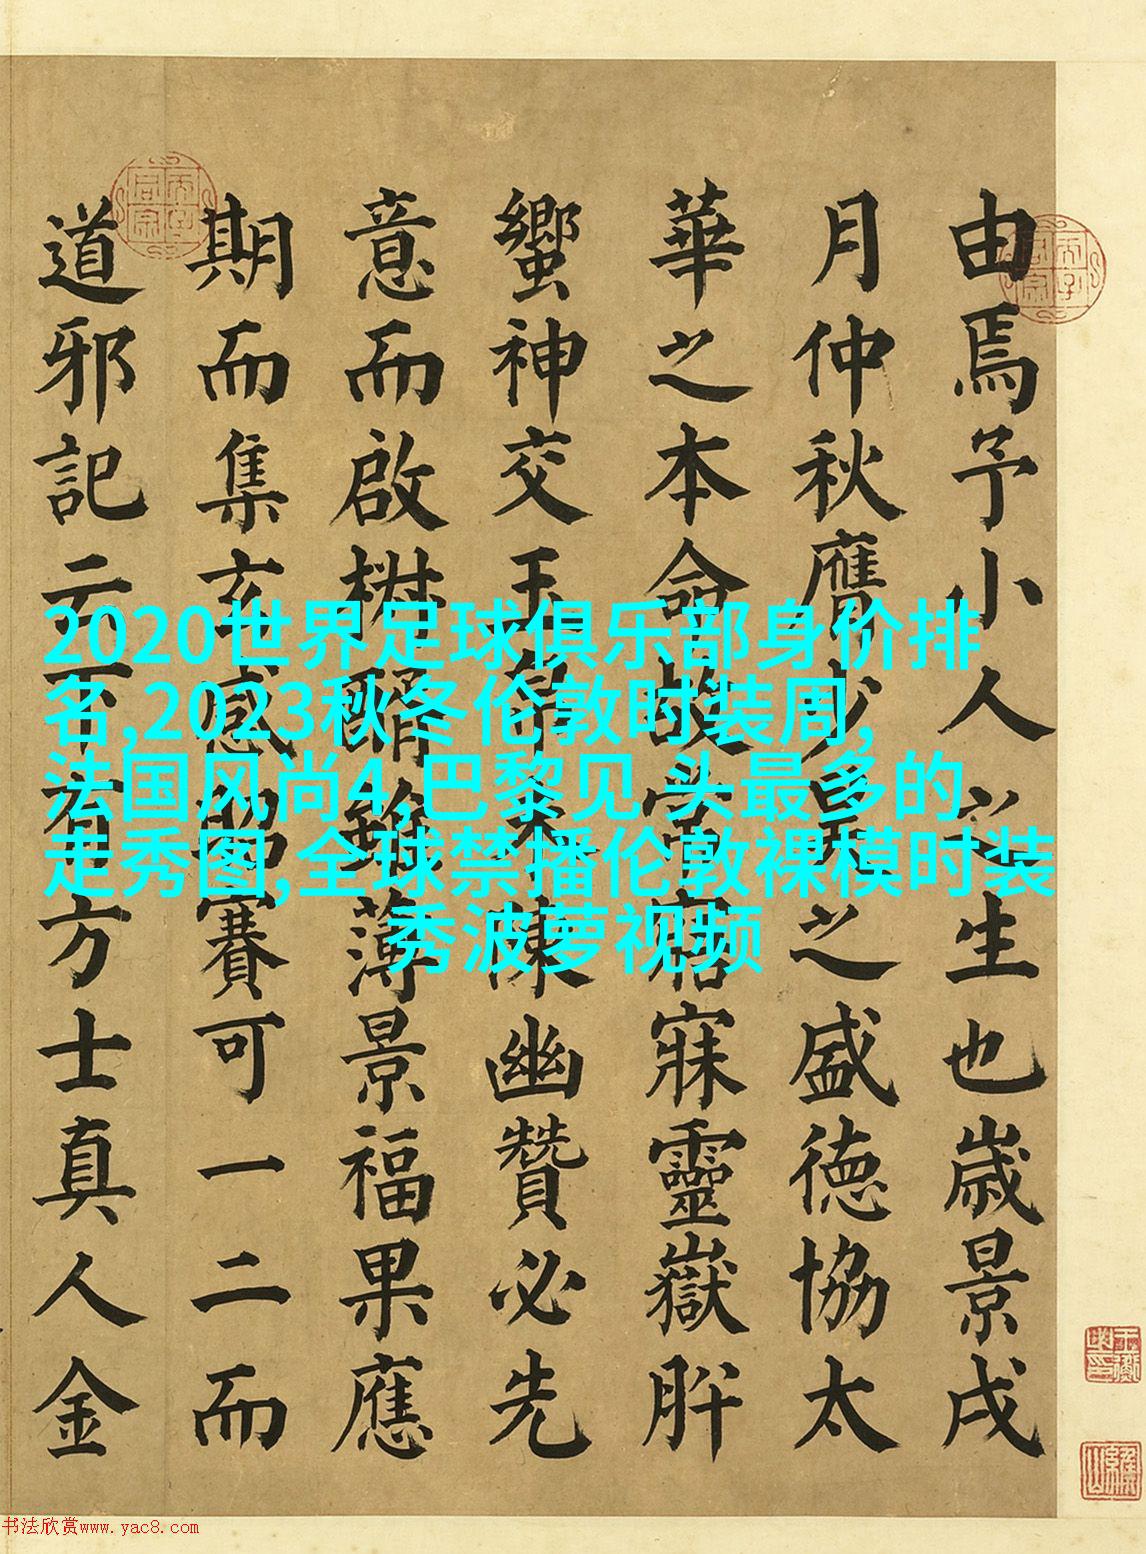 由焉予小人之生也歲景戌
月仲秋膺少昊之盛德協太
華之本命故常寤寐靈嶽肸
蠁神交玉帛未陳幽贊必先
意而啟椒醑雖薄景福果應
期而集玄感昭賽可一二而
道邪記云者方士真人金
2020世界足球俱乐部身价排
名,2023秋冬伦敦时装周,
法国风尚4,巴黎见 头最多的
走秀图,全球禁播伦敦裸模时装
秀波萝视频
书法欣赏www.yac8.com